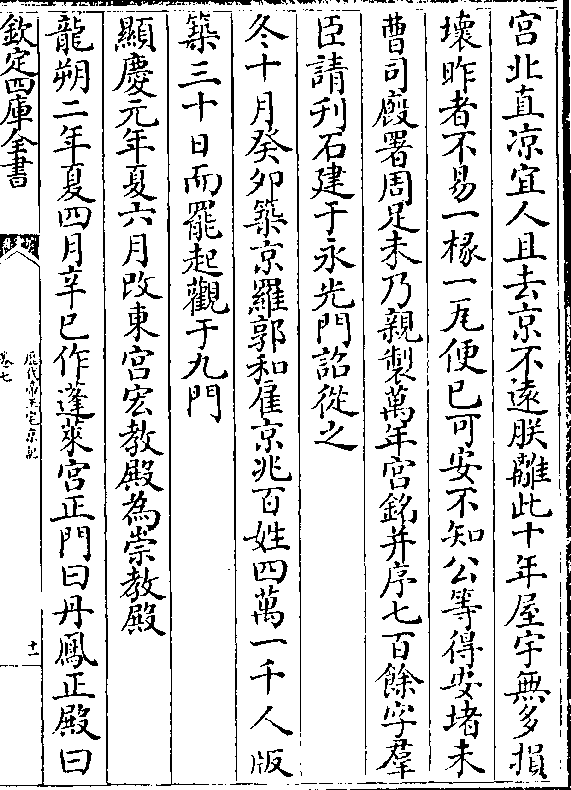 宮北直凉宜人且去京不遠朕離此十年屋宇無多損
壊昨者不易一椽一瓦便已可安不知公等得安堵未
曹司廨署周足未乃親製萬年宮銘并序七百餘字羣
臣請刋石建于永光門詔從之
冬十月癸夘築京羅郭和雇京兆百姓四萬一千人版
築三十日而罷起觀于九門
顯慶元年夏六月改東宮宏教殿為崇教殿
龍朔二年夏四月辛巳作蓬萊宮正門曰丹鳳正殿曰
欽定四庫全書
歴代帝王宅京記
卷七
十一